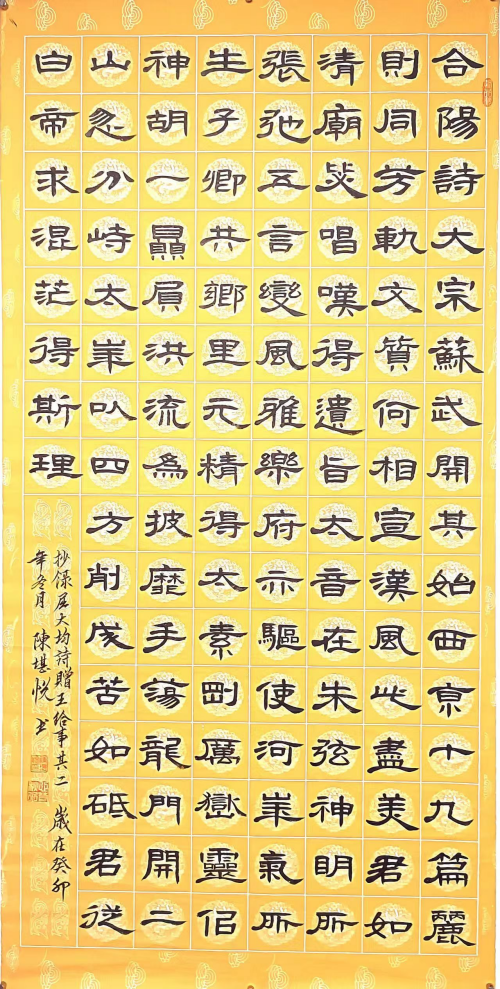 合陽詩大宗蘇武開其始西京十九篇麗
則同芳軌文質何相宣漢風此盡美君如
清廟唱嘆得遺旨太音在朱弦神明所
張弛五言變風雅樂府亦驅使河華氣所
生子卿共鄉里元精得太素剛厲嶽靈侣
神胡一贔屓洪流為披靡手蕩龍門開二
山忽分峙太華以四方削成苦如砥君從
白帝求混茫得斯理
抄錄屈大均詩贈王給事其二 歲在癸卯
年冬月 陳堪悅書